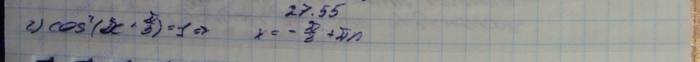 27.55
2) cos²(x + π/3) = 1 => x = - π/3 + πn